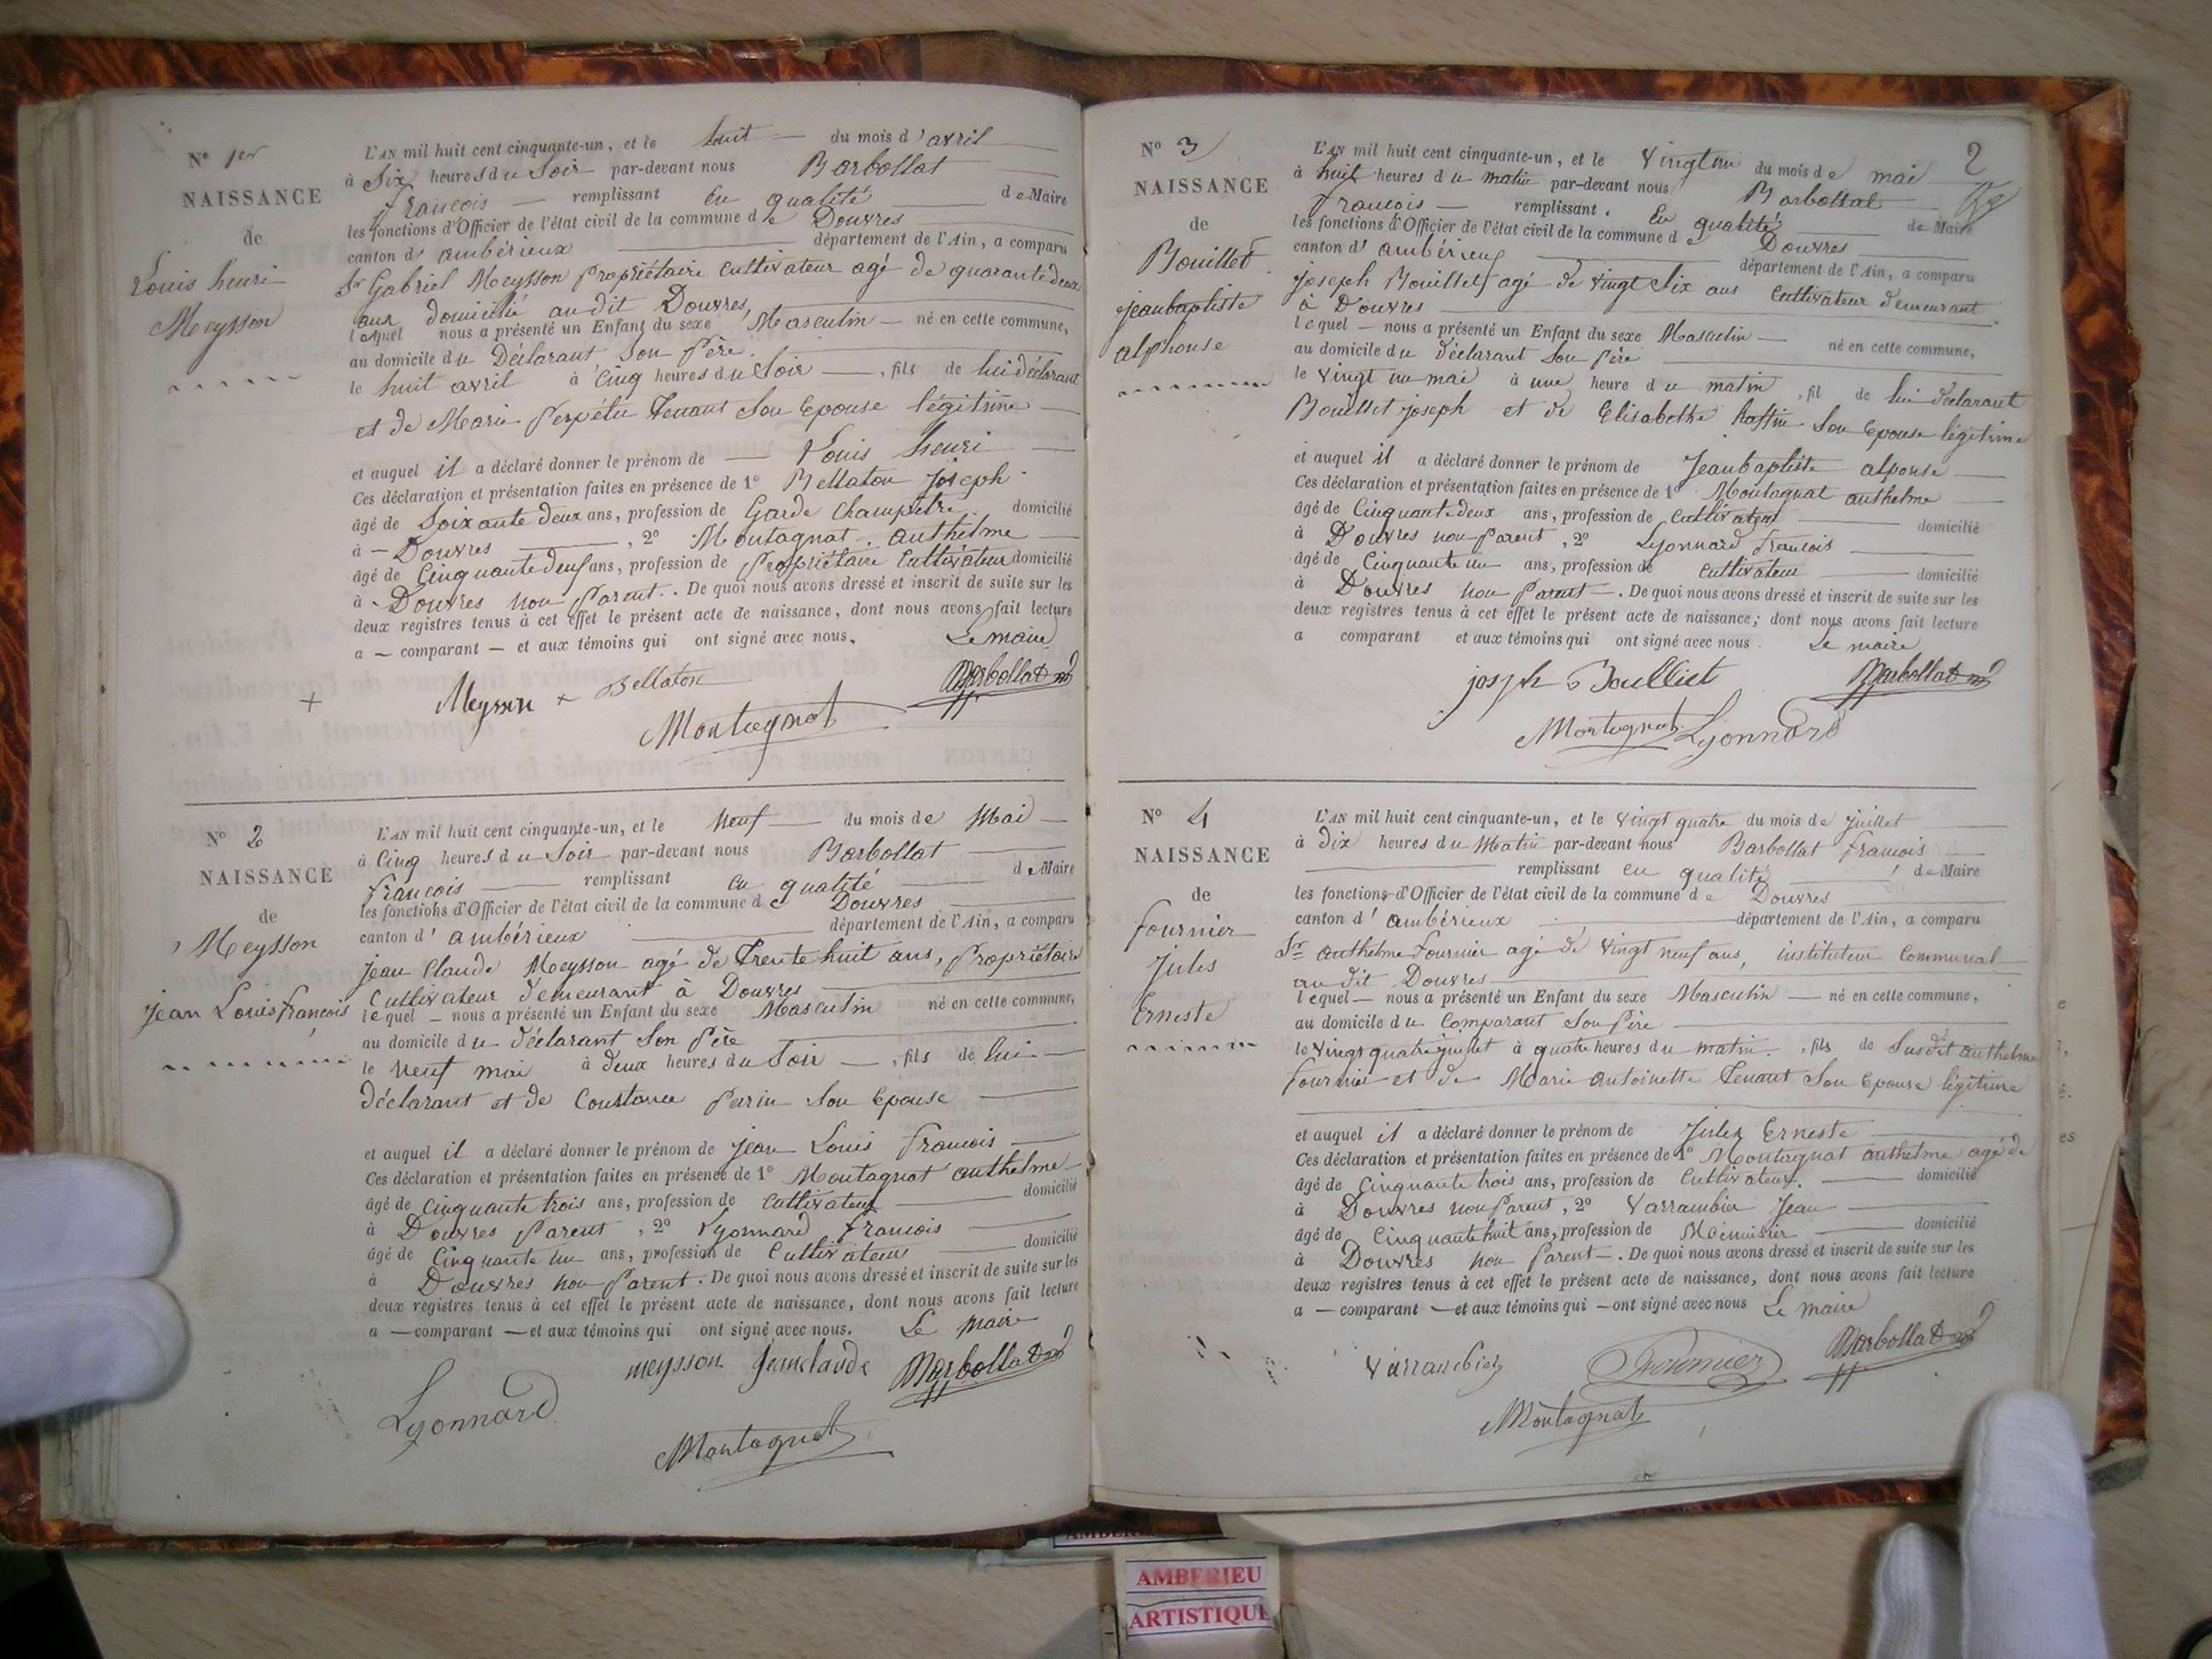 N° 1er
NAISSANCE
de
Louis henri
Meysson
L'AN mil huit cent cinquante-un, et le huit du mois d'avril
à Six heures du Soir par-devant nous Barbollat
francois remplissant en qualité de Maire
les fonctions d'Officier de l'état civil de la commune de Douvres
canton d'ambérieux département de l'Ain, a comparu
Sr Gabriel Meysson Propriétaire Cultivateur agé de quarante deux
ans domicilié au dit Douvres,
lequel nous a présenté un Enfant du sexe Masculin né en cette commune,
au domicile du Déclarant Son Père
le huit avril à Cinq heures du Soir, fils de lui déclarant
et de Marie Perpétu Tenant Son Epouse légitime
et auquel il a déclaré donner le prénom de Louis henri
Ces déclaration et présentation faites en présence de 1° Bellaton joseph
âgé de Soixante deux ans, profession de Garde Champêtre domicilié
à Douvres, 2° Montagnat anthelme
âgé de Cinquante deux ans, profession de Propriétaire Cultivateur domicilié
à Douvres non Parent. De quoi nous avons dressé et inscrit de suite sur les
deux registres tenus à cet effet le présent acte de naissance, dont nous avons fait lecture
a comparant et aux témoins qui ont signé avec nous. Le maire
+ Meysson x Bellaton Barbollat
Montagnat
N° 2
NAISSANCE
de
Meysson
jean Louis francois
L'AN mil huit cent cinquante-un, et le Neuf du mois de Mai
à Cinq heures du Soir par-devant nous Barbollat
francois remplissant en qualité de Maire
les fonctions d'Officier de l'état civil de la commune de Douvres
canton d'ambérieux département de l'Ain, a comparu
jean Claude Meysson agé de Trente huit ans, Propriétaire
Cultivateur demeurant à Douvres
lequel nous a présenté un Enfant du sexe Masculin né en cette commune,
au domicile du déclarant Son Père
le neuf mai à deux heures du Soir, fils de lui
déclarant et de Constance Perin Son Epouse
et auquel il a déclaré donner le prénom de jean Louis francois
Ces déclaration et présentation faites en présence de 1° Montagnat anthelme
âgé de Cinquante trois ans, profession de Cultivateur domicilié
à Douvres Parent, 2° Lyonnard francois
âgé de Cinquante un ans, profession de Cultivateur domicilié
à Douvres non Parent. De quoi nous avons dressé et inscrit de suite sur les
deux registres tenus à cet effet le présent acte de naissance, dont nous avons fait lecture
a comparant et aux témoins qui ont signé avec nous. Le Maire
meysson Jeanclaude Barbollat
Lyonnard
Montagnat
2
N° 3
NAISSANCE
de
Bouillet
jeanbaptiste
alphonse
L'AN mil huit cent cinquante-un, et le Vingt un du mois de mai
à huit heures du matin par-devant nous Barbollat
francois remplissant en qualité de Maire
les fonctions d'Officier de l'état civil de la commune de Douvres
canton d'ambérieux département de l'Ain, a comparu
joseph Bouillet agé de vingt Six ans Cultivateur demeurant
à Douvres
lequel nous a présenté un Enfant du sexe Masculin né en cette commune,
au domicile du déclarant Son Père
le vingt un mai à une heure du matin, fil de lui déclarant
Bouillet joseph et de Elisabethe Son Epouse légitime
et auquel il a déclaré donner le prénom de Jeanbaptiste alponse
Ces déclaration et présentation faites en présence de 1° Montagnat anthelme
âgé de Cinquante deux ans, profession de Cultivateur domicilié
à Douvres non Parent, 2° Lyonnard francois
âgé de Cinquante un ans, profession de Cultivateur domicilié
à Douvres non Parent. De quoi nous avons dressé et inscrit de suite sur les
deux registres tenus à cet effet le présent acte de naissance; dont nous avons fait lecture
a comparant et aux témoins qui ont signé avec nous. Le maire
joseph Boulliet Barbollat
Montagnat Lyonnard
N° 4
NAISSANCE
de
fournier
Jules
Erneste
L'AN mil huit cent cinquante-un, et le Vingt quatre du mois de juillet
à dix heures du Matin par-devant nous Barbollat francois
remplissant en qualité de Maire
les fonctions d'Officier de l'état civil de la commune de Douvres
canton d'ambérieux département de l'Ain, a comparu
Sr anthelme Fournier agé de vingt neuf ans, instituteur Communal
au dit Douvres
lequel nous a présenté un Enfant du sexe Masculin né en cette commune,
au domicile du Comparant Son Père
le Vingt quatre juillet à quatre heures du matin, fils de Susdit anthelme
fournier et de Marie antoinette Tenant Son Epouse légitime
et auquel il a déclaré donner le prénom de Jules Erneste
Ces déclaration et présentation faites en présence de 1° Montagnat anthelme agé de
âgé de Cinquante trois ans, profession de Cultivateur. domicilié
à Douvres non Parent, 2° Varrambier Jean
âgé de Cinquante huit ans, profession de Menuisier domicilié
à Douvres non Parent. De quoi nous avons dressé et inscrit de suite sur les
deux registres tenus à cet effet le présent acte de naissance, dont nous avons fait lecture
a comparant et aux témoins qui ont signé avec nous Le maire
Varrambier Fournier Barbollat
Montagnat
AMBERIEU
ARTISTIQUE